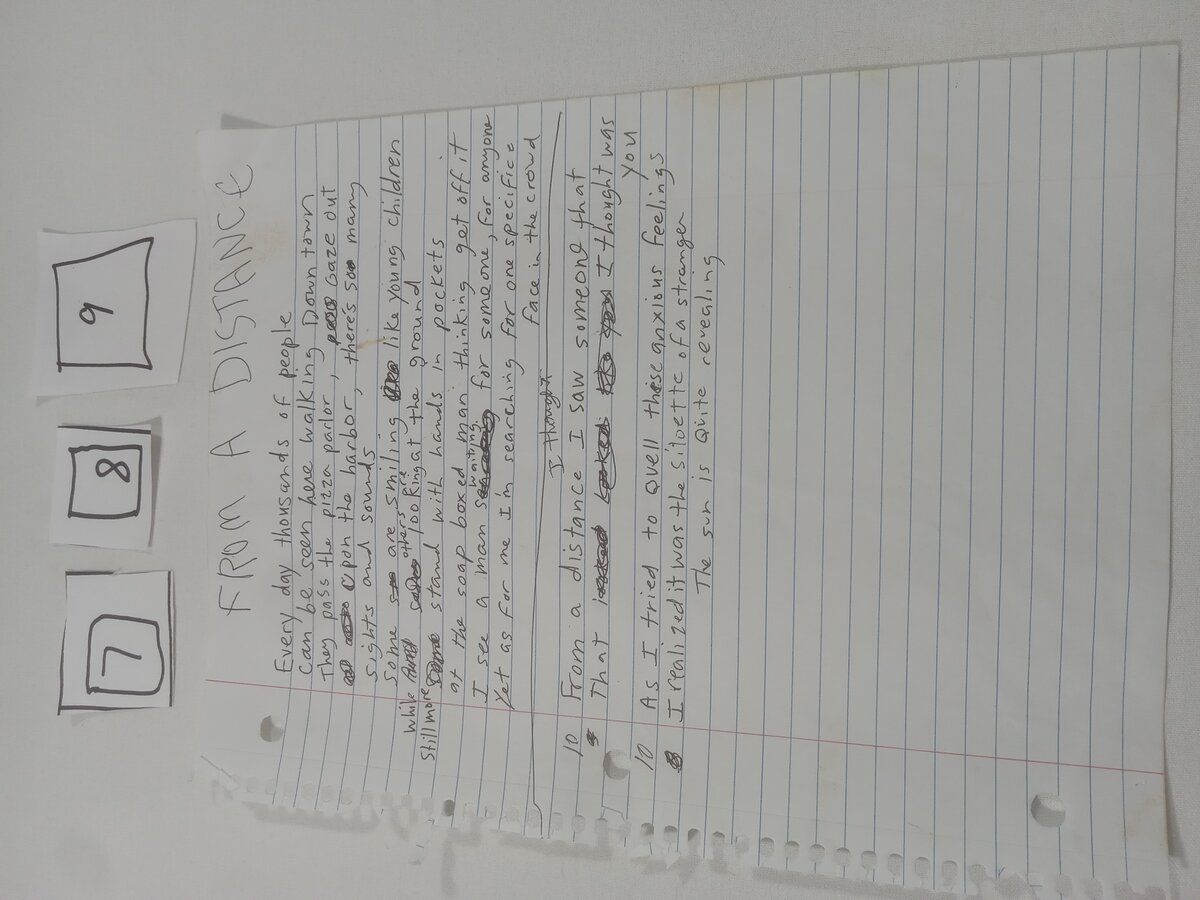 7
8
9
FROM A DISTANCE
Every day thousands of people
Can be seen here walking Down town
They pass the pizza parlor, Gaze out
upon the harbor, there's so many
sights and sounds
Some are smiling like young children
while others are looking at the ground
Still more stand with hands in pockets
at the soap boxed man thinking get off it
I see a man waiting for someone, for anyone
Yet as for me I'm searching for one specific
face in the crowd
I thought
10 From a distance I saw someone that
That I thought was
you
10 As I tried to quell these anxious feelings
8 I realized it was the siloette of a stranger
The sun is Quite revealing